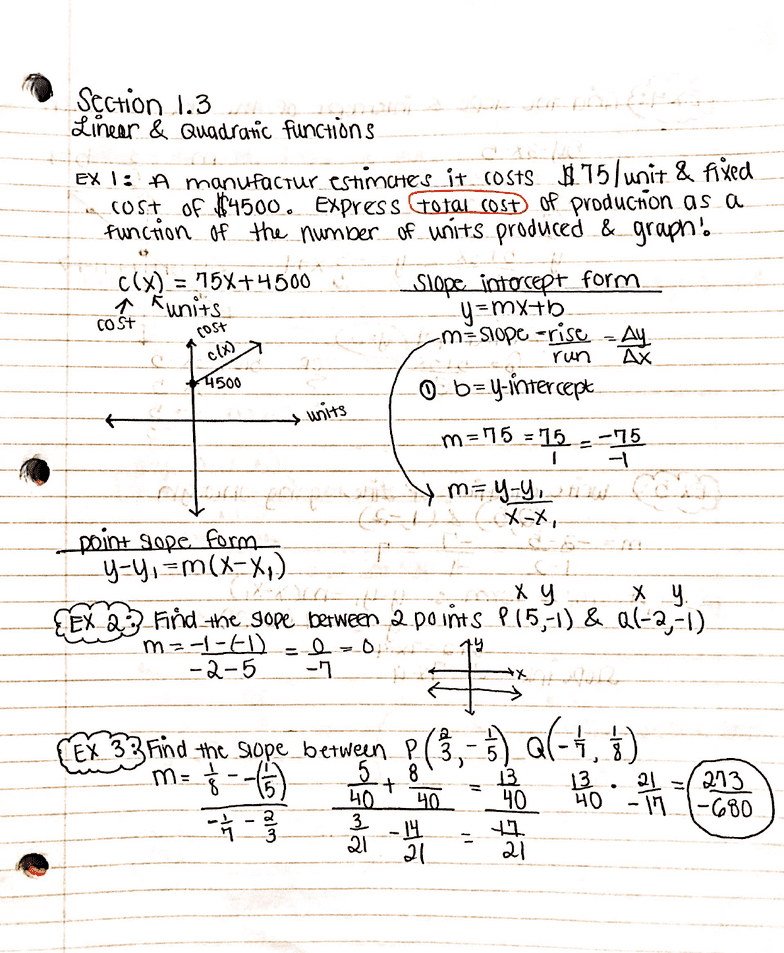 Section 1.3
Linear & Quadratic functions
EX 1: A manufactur estimates it costs $75/unit & fixed
cost of $4500. Express total cost of production as a
function of the number of units produced & graph!
c(x) = 75x+4500
↑ ↖units
cost
cost
c(x)
4500
units
slope intercept form
y=mx+b
m=slope - rise/run = Δy/Δx
① b=y-intercept
m=75 = 75/1 = -75/-1
m= y-y₁/x-x₁
point slope form
y-y₁=m(x-x₁)
x y x y
EX 2: Find the slope between 2 points P(5,-1) & Q(-2,-1)
m= -1-(-1)/-2-5 = 0/-7 = 0
y
x
EX 3: Find the slope between P(2/3, -1/5) Q(-1/7, 1/8)
m= 1/8 - -(1/5) / -1/7 - 2/3
5/40 + 8/40 = 13/40
3/21 - 14/21 = -17/21
13/40 · 21/-17 = 273/-680